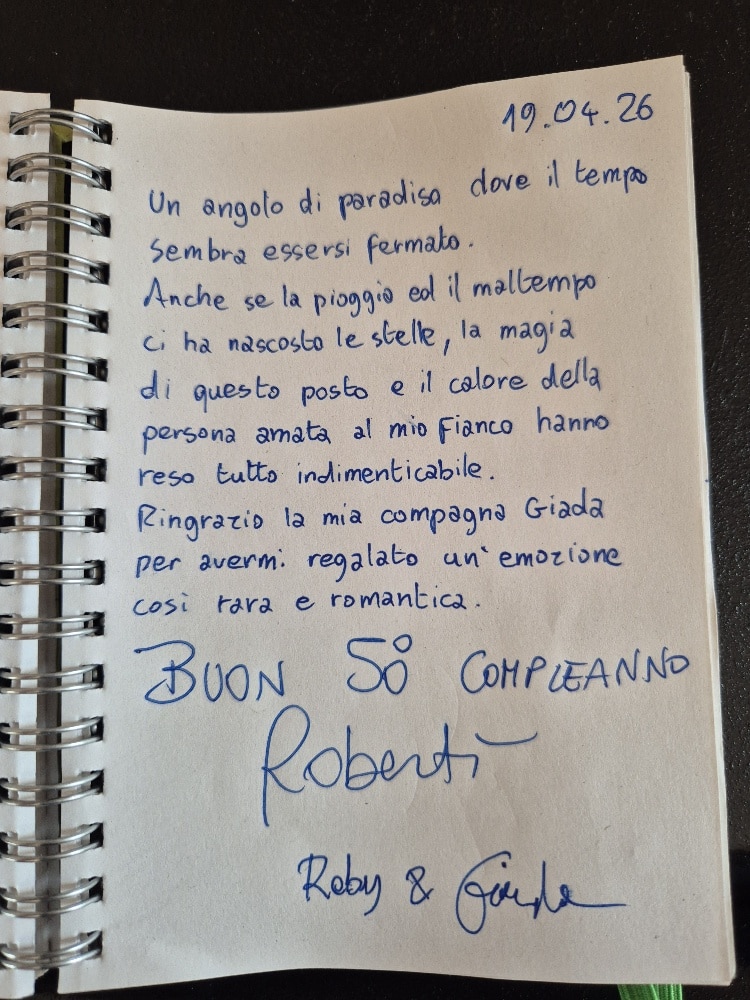 19.04.26
Un angolo di paradiso dove il tempo
sembra essersi fermato.
Anche se la pioggia ed il maltempo
ci ha nascosto le stelle, la magia
di questo posto e il calore della
persona amata al mio fianco hanno
reso tutto indimenticabile.
Ringrazio la mia compagna Giada
per avermi regalato un' emozione
così rara e romantica.
BUON 50° COMPLEANNO
Roberto
Roby & Giada